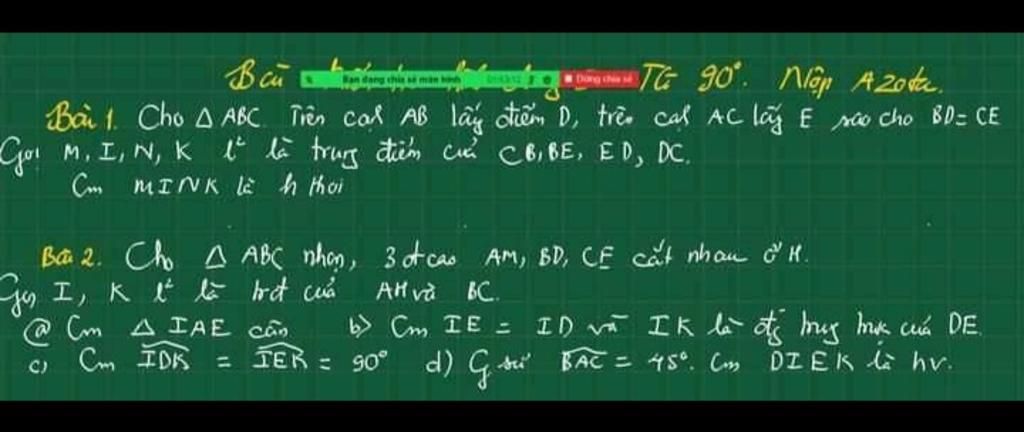 Bài TG 90°. Nộp Azota.
Bạn đang chia sẻ màn hình Dừng chia sẻ
Bài 1. Cho △ ABC Trên cạnh AB lấy điểm D, trên cạnh AC lấy E sao cho BD = CE
Gọi M, I, N, K l² là trung điểm của CB, BE, ED, DC.
Cm MINK là h thoi
Bài 2. Cho △ ABC nhọn, 3 đ cao AM, BD, CE cắt nhau ở H.
Gọi I, K l² là trđ của AH và BC.
a) Cm △ IAE cân b) Cm IE = ID và IK là đg trung trực của DE.
c) Cm IDK = IEK = 90° d) G sử BAC = 45°. Cm DIEK là hv.